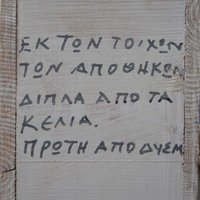 ΕΚ ΤΩΝ ΤΟΙΧΩΝ
ΤΩΝ ΑΠΟΘΗΚΩΝ
ΔΙΠΛΑ ΑΠΟ ΤΑ
ΚΕΛΙΑ.
ΠΡΩΤΗ ΑΠΟΔΥΕΜ